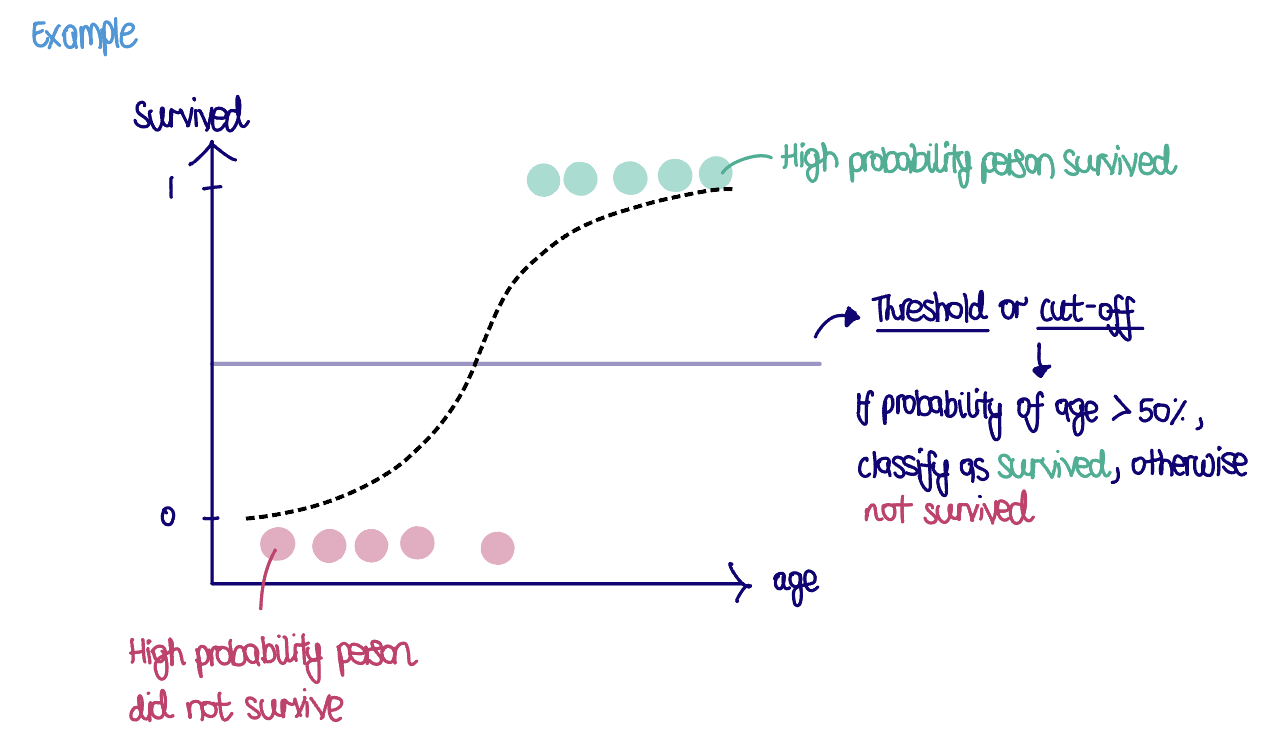 Example
Survived
1
High probability person survived
Threshold or cut-off
If probability of age > 50%,
classify as survived, otherwise
not survived
0
age
High probability person
did not survive